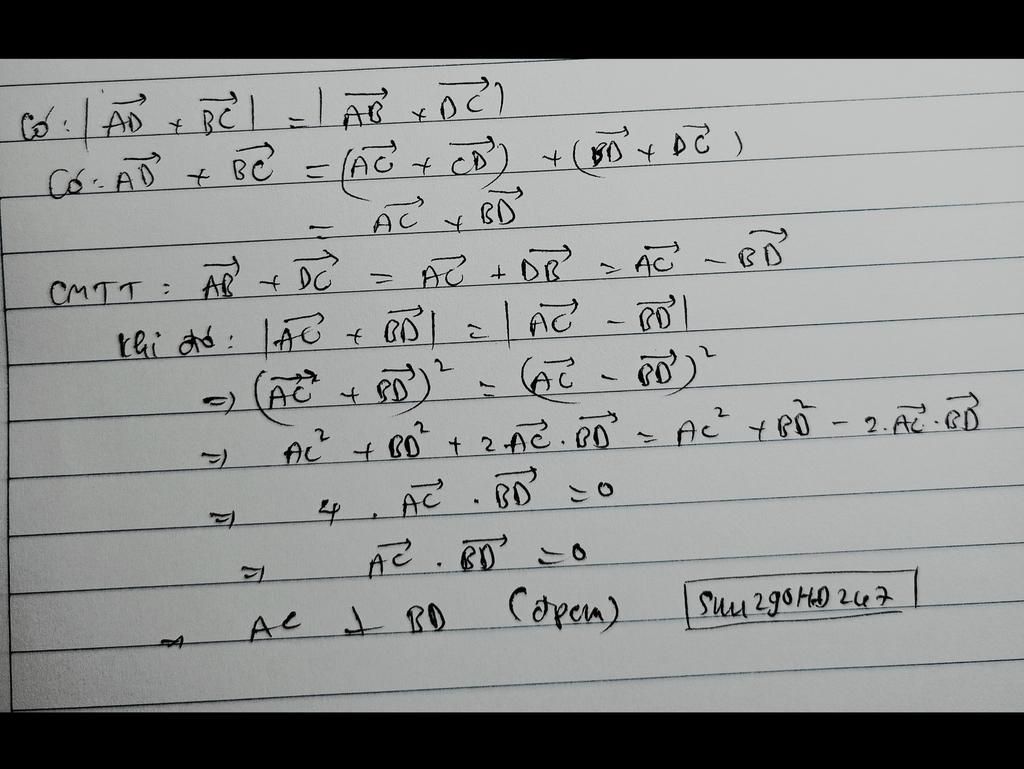 Có: |\overrightarrow{AD} + \overrightarrow{BC}| = |\overrightarrow{AB} + \overrightarrow{DC}|
Có: \overrightarrow{AD} + \overrightarrow{BC} = (\overrightarrow{AC} + \overrightarrow{CD}) + (\overrightarrow{BD} + \overrightarrow{DC})
= \overrightarrow{AC} + \overrightarrow{BD}
CMTT: \overrightarrow{AB} + \overrightarrow{DC} = \overrightarrow{AC} + \overrightarrow{DB} = \overrightarrow{AC} - \overrightarrow{BD}
Khi đó: |\overrightarrow{AC} + \overrightarrow{BD}| = |\overrightarrow{AC} - \overrightarrow{BD}|
⇒ (\overrightarrow{AC} + \overrightarrow{BD})² = (\overrightarrow{AC} - \overrightarrow{BD})²
⇒ AC² + BD² + 2.\overrightarrow{AC}.\overrightarrow{BD} = AC² + BD² - 2.\overrightarrow{AC}.\overrightarrow{BD}
⇒ 4.\overrightarrow{AC}.\overrightarrow{BD} = 0
⇒ \overrightarrow{AC}.\overrightarrow{BD} = 0
⇒ AC ⊥ BD (đpcm)